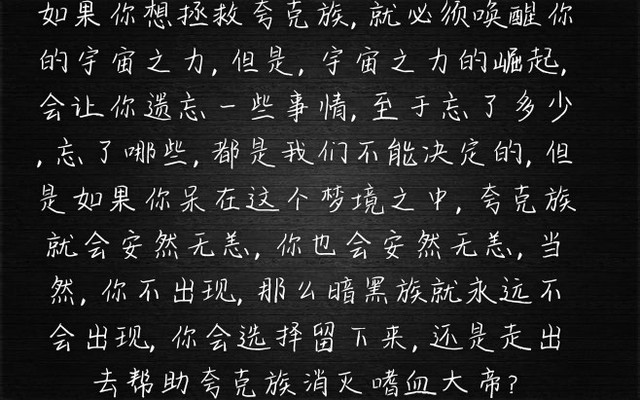 如果你想拯救夸克族,就必须唤醒你
的宇宙之力,但是,宇宙之力的崛起,
会让你遗忘一些事情,至于忘了多少
,忘了哪些,都是我们不能决定的,但
是如果你呆在这个梦境之中,夸克族
就会安然无恙,你也会安然无恙,当
然,你不出现,那么暗黑族就永远不
会出现,你会选择留下来,还是走出
去帮助夸克族消灭嗜血大帝?